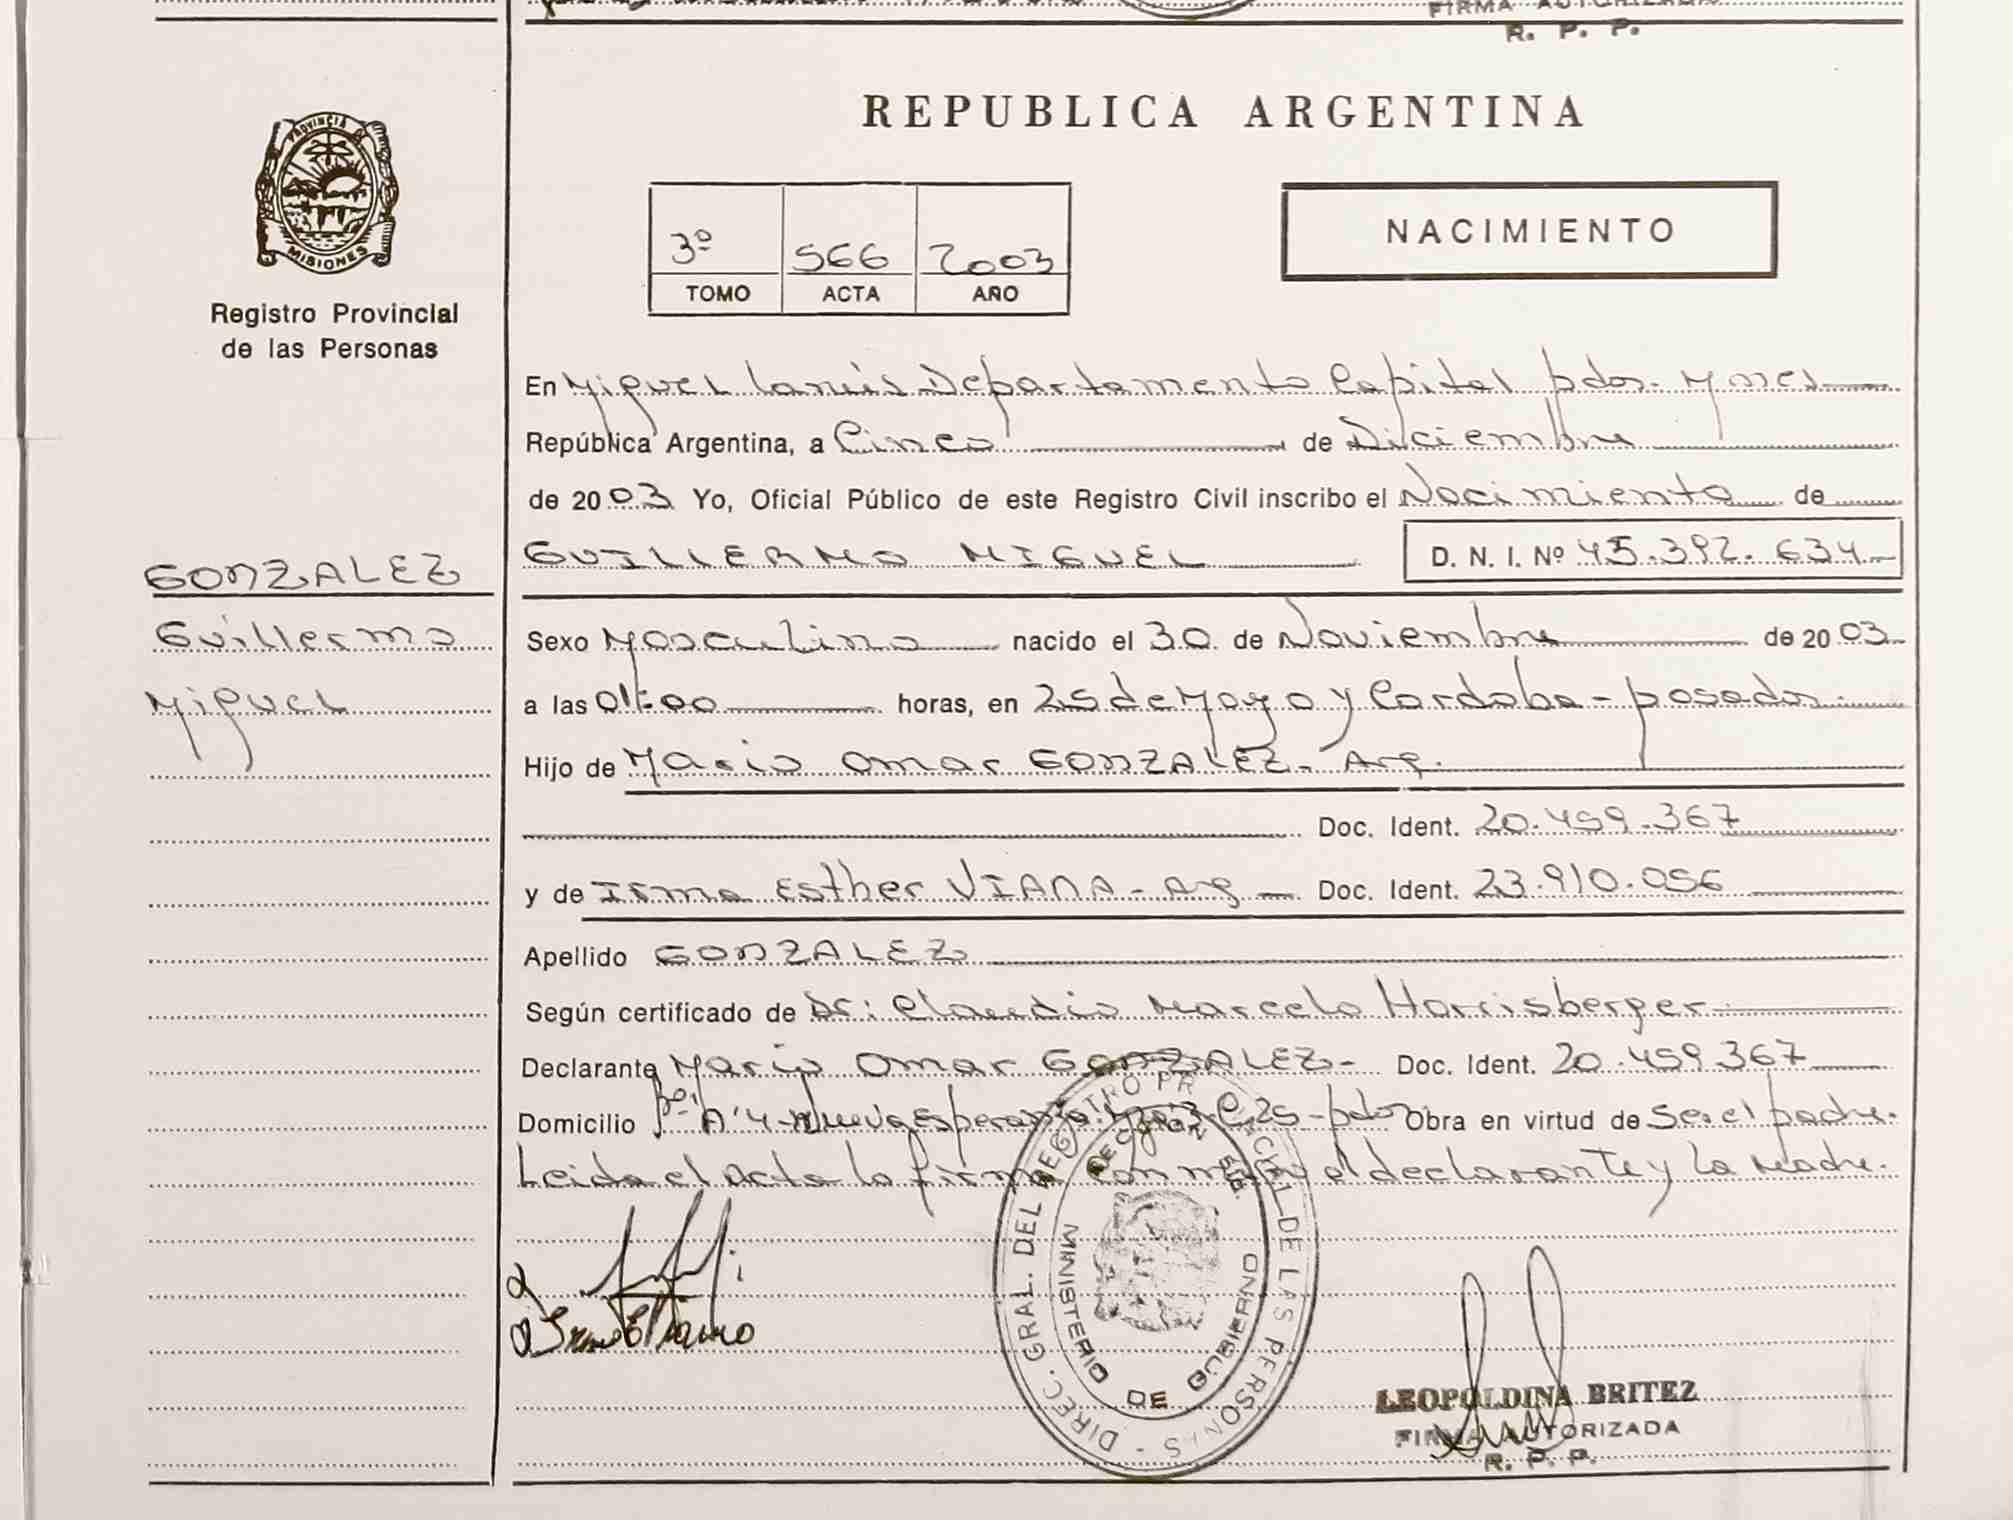 FIRMA AUTORIZADA
R. P. P.
REPUBLICA ARGENTINA
PROVINCIA
MISIONES
Registro Provincial
de las Personas
3º 566 2003
TOMO ACTA AÑO
NACIMIENTO
En Miguel Lanús Departamento Capital pdas. Mnes
República Argentina, a Cinco de Diciembre
de 2003 Yo, Oficial Público de este Registro Civil inscribo el Nacimiento de
GONZALEZ
Guillermo
Miguel
GUILLERMO MIGUEL D. N. I. Nº 45.392.634
Sexo Masculino nacido el 30 de Noviembre de 2003
a las 01:00 horas, en 25 de Mayo y Cordoba - posadas
Hijo de Mario Omar GONZALEZ - Arg.
Doc. Ident. 20.459.367
y de Irma Esther VIANA - Arg Doc. Ident. 23.910.056
Apellido GONZALEZ
Según certificado de Dr: Claudio Marcelo Harrisberger
Declarante Mario Omar GONZALEZ - Doc. Ident. 20.459.367
Domicilio A-4 - Nueva Esperanza C 25 - pdas Obra en virtud de ser el padre.
Leida el acta la firma con migo el declarante y la Madre.
DIREC. GRAL. DEL REGISTRO PROVINCIAL DE LAS PERSONAS -
MINISTERIO DE GOBIERNO
LEOPOLDINA BRITEZ
FIRMA AUTORIZADA
R. P. P.